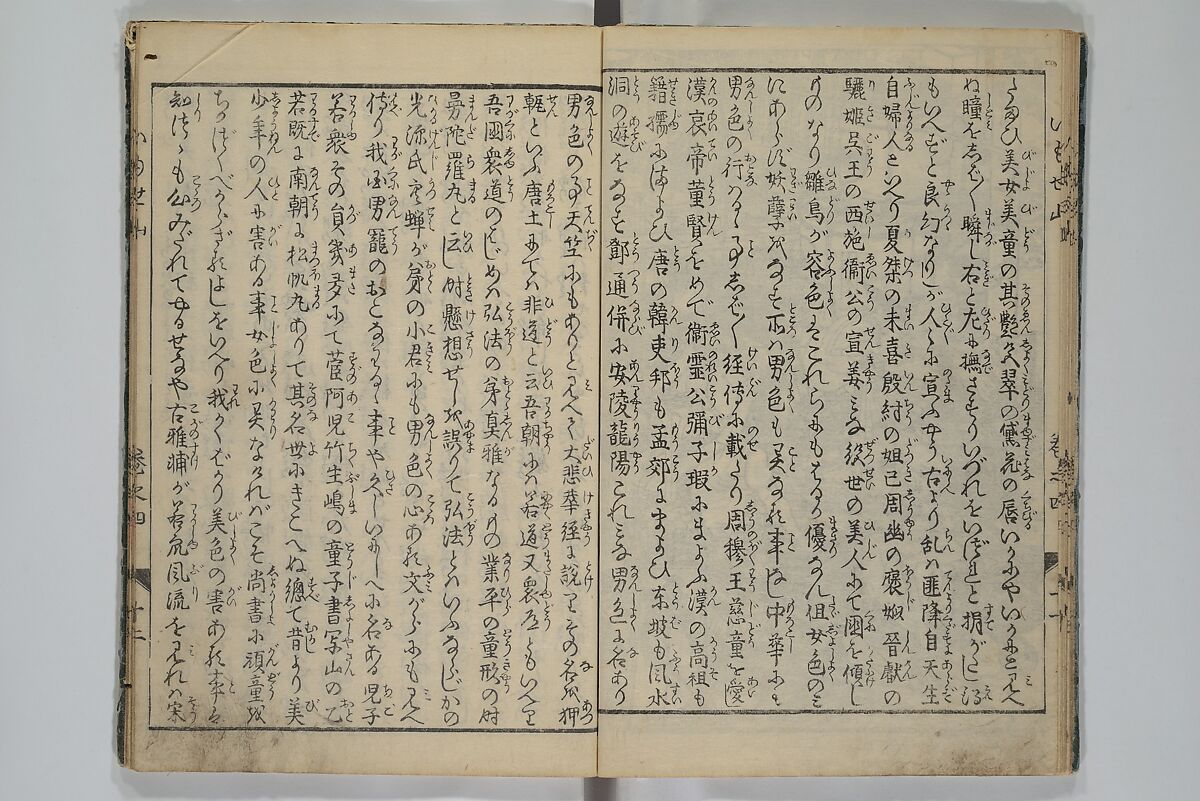 美女美童の其艶 翠の黛 花の唇いかにやいかにと見へ
ぬ瞳をしばしば瞬し右と左に撫さすりいづれをいづれと捐がたし
もいへど良幻なりしが人々に宣ふやう古より乱は匪降自天生
自婦人といへり夏桀の末喜殷紂の妲己周幽の褒姒晉獻の
驪姫呉王の西施衞公の宣姜みな後世の美人にて国を傾し
ものなり雛鳥が容色そこれらにもまさる優なん但女色のみ
にあらず妖孽をなす所は男色も異なる事なし中華にも
男色の行はるゝ事しばしば経傳に載たり周穆王慈童を愛し
漢哀帝董賢をめで衞霊公彌子瑕にまよふ漢の高祖も
籍孺にまよひ唐の韓吏部も孟郊にまよひ東坡も風水
洞の遊をなす鄧通併に安陵龍陽これみな男色に名あり
男色の事天竺にもありと見へて大悲華経に説てその名を狎
といふ唐土にては非道と云吾朝には若道又衆道ともいへり
吾国衆道のはじめは弘法の弟真雅なるもの業平の童形の時
曼陀羅丸と云し時懸想せしを誤りて弘法とはいふならしかの
光源氏空蝉が弟の小君にも男色の心ある文がらにも見へ
侍り我国男寵のおとなる事や久しいにしへに名ある児子
若衆その員幾多にて菅阿児竹生嶋の童子書写山の乙
若既に南朝に松帆丸ありて其名世にきこへぬ總て昔より美
少年の人に害ある事女色に異なければこそ尚書に頑童を
ちかづくべからざるはしをいへり我かくばかり美色の害ある事を
知つゝも公みだれてやるせなや古雅浦が若 風流を見れば宋
巻之四
十二